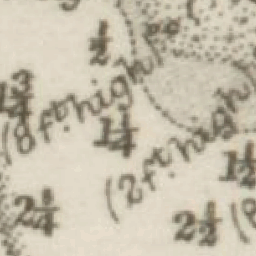 ½
1¾
(8 ft. high)
1¼
(2 ft. high)
1½
2¼
2½